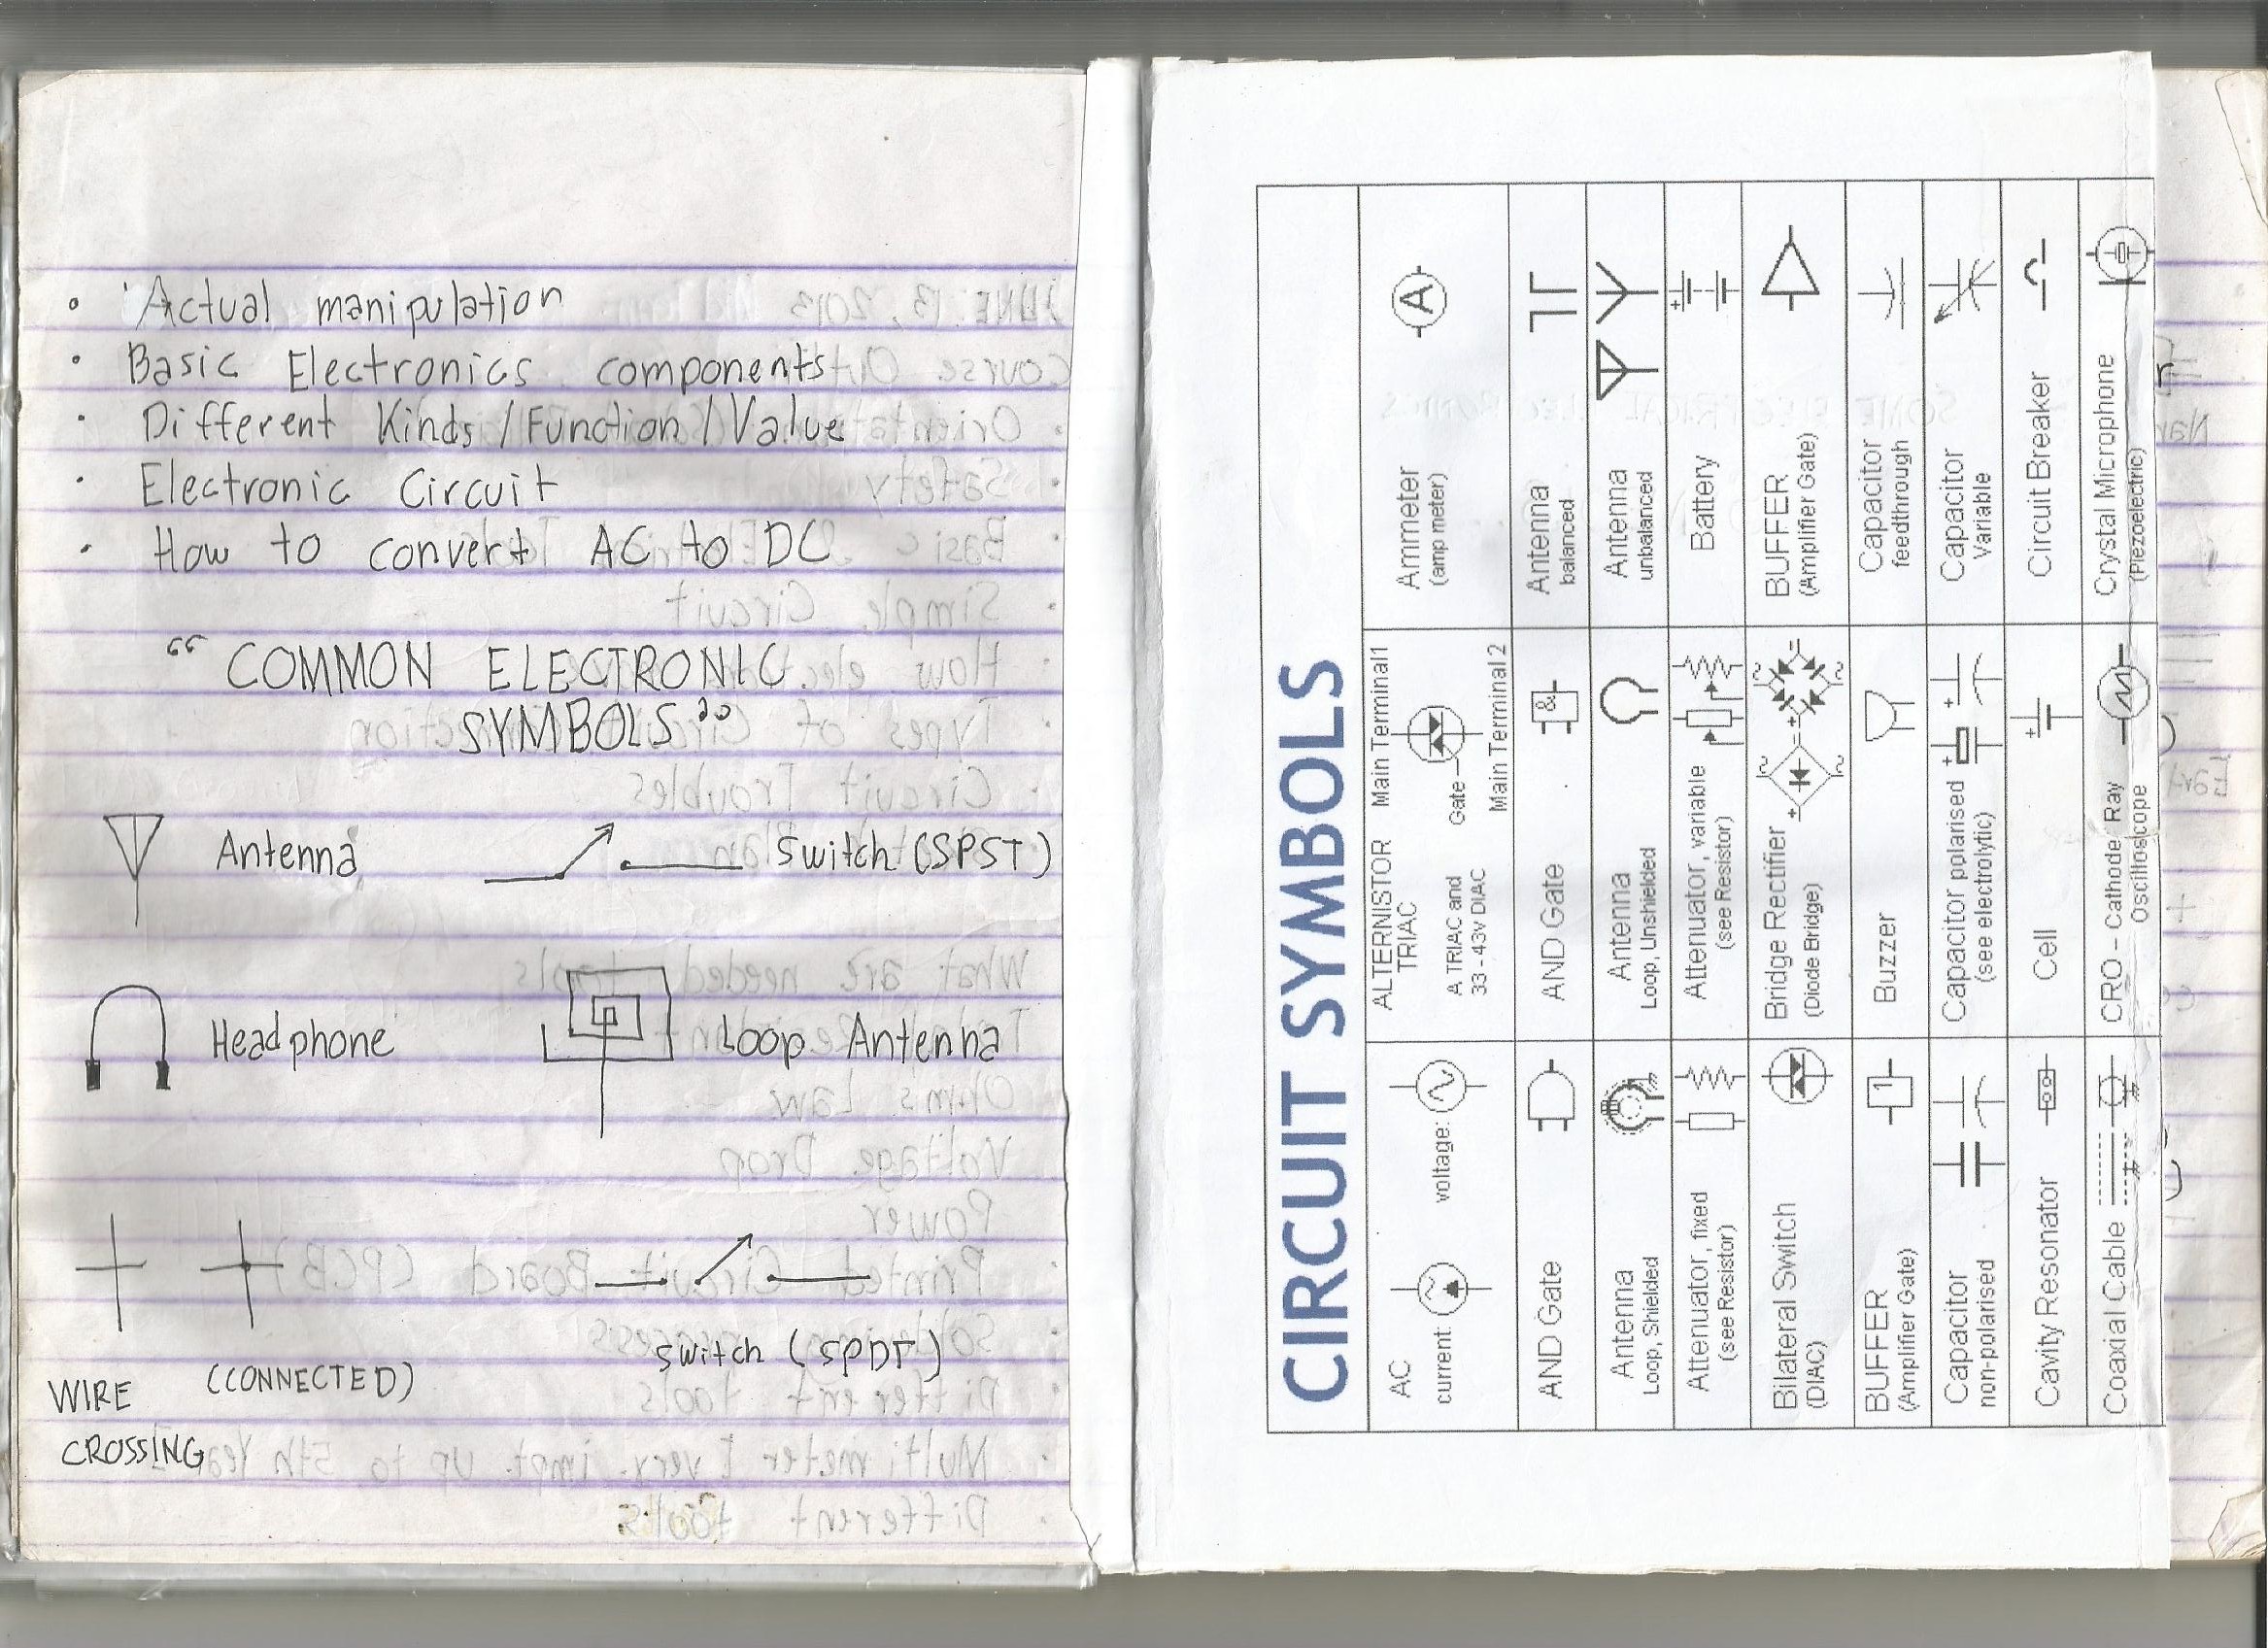 • Actual manipulation
• Basic Electronics components
• Different Kinds / Function / Value
• Electronic Circuit
• How to convert AC to DC
“ COMMON ELECTRONIC
SYMBOLS ”
Antenna
Switch (SPST)
Headphone
Loop Antenna
WIRE
CROSSING
(CONNECTED)
Switch (SPDT)
CIRCUIT SYMBOLS
AC
current:
voltage:
ALTERNISTOR
TRIAC
A TRIAC and
33 - 43v DIAC
Main Terminal1
Gate
Main Terminal 2
Ammeter
(amp meter)
A
AND Gate
AND Gate
&
Antenna
balanced
Antenna
Loop, Shielded
Antenna
Loop, Unshielded
Antenna
unbalanced
Attenuator, fixed
(see Resistor)
Attenuator, variable
(see Resistor)
Battery
Bilateral Switch
(DIAC)
Bridge Rectifier
(Diode Bridge)
BUFFER
(Amplifier Gate)
BUFFER
(Amplifier Gate)
1
Buzzer
Capacitor
feedthrough
Capacitor
non-polarised
Capacitor polarised
(see electrolytic)
Capacitor
Variable
Cavity Resonator
Cell
Circuit Breaker
Coaxial Cable
CRO - Cathode Ray
Oscilloscope
Crystal Microphone
(Piezoelectric)